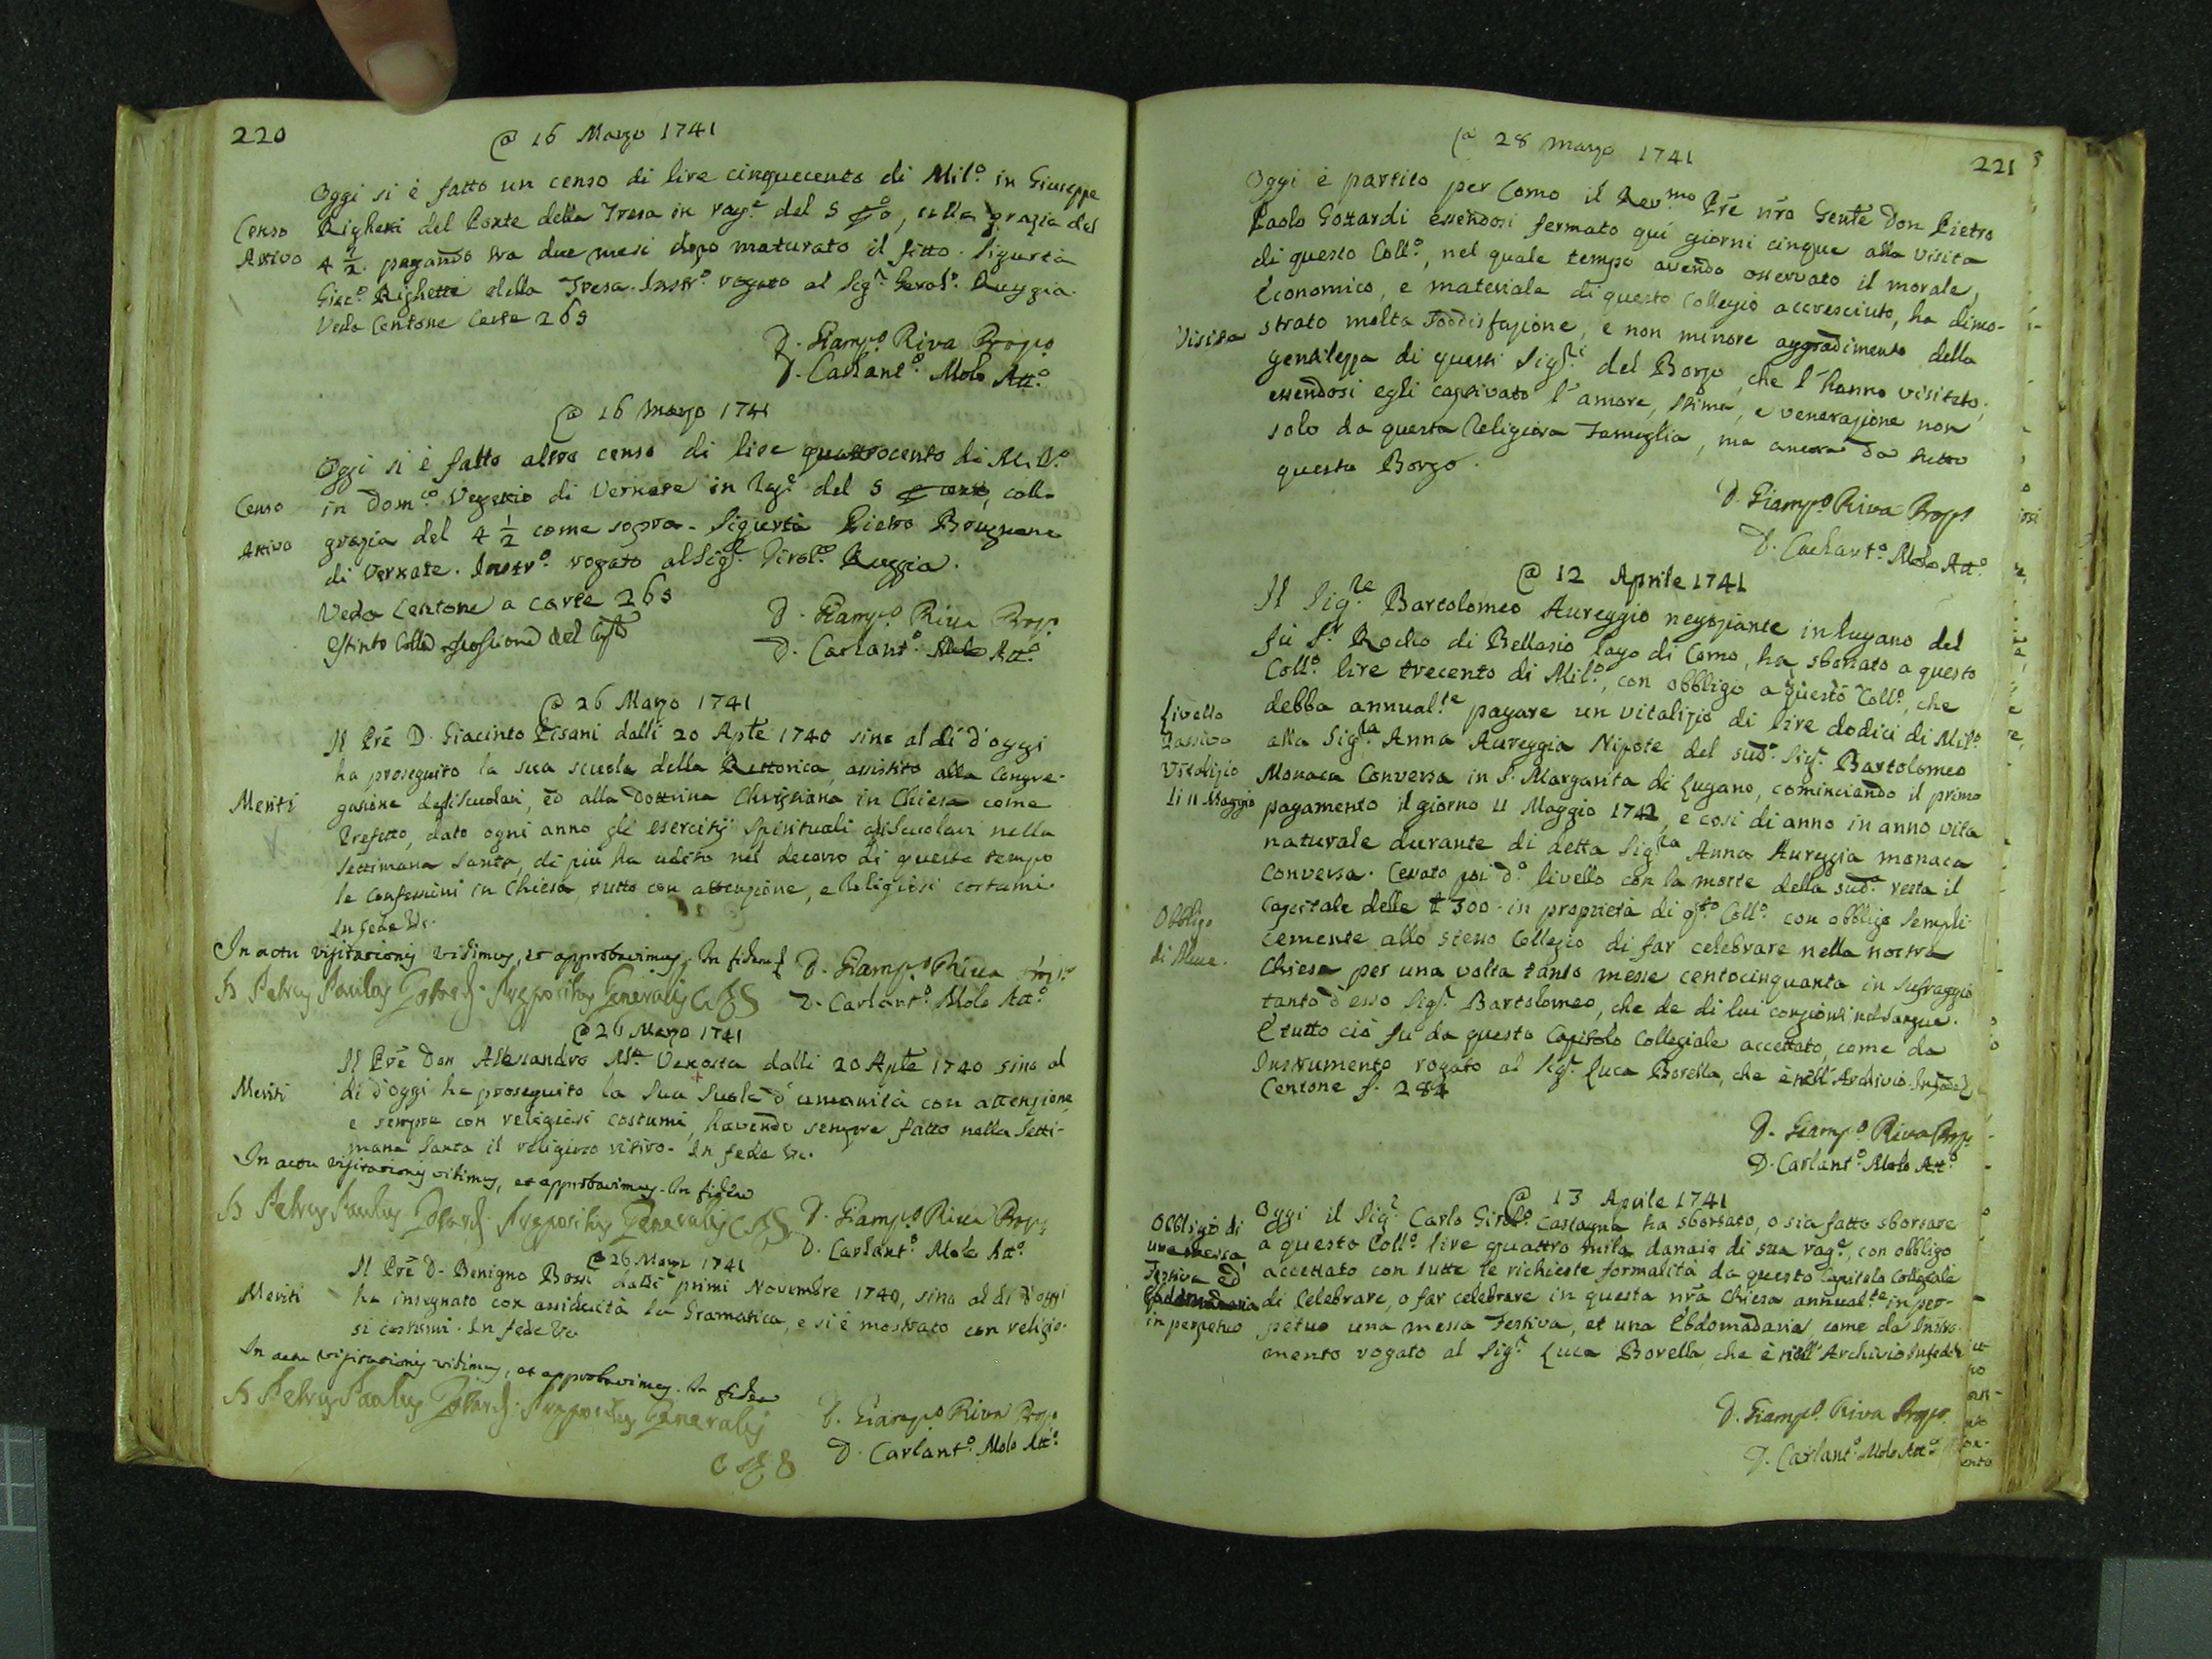 220
@ 16 Marzo 1741
Oggi si è fatto un censo di lire cinquecento di Mil.o in Giuseppe
Censo
Righetti del Ponte della Tresa in rag.e del 5 p %, colla grazia del
Attivo
4 1/2 pagando tra due mesi dopo maturato il fitto. Sigurtà
Giac.o Righetti della Tresa. Instr.o rogato al Sig.r Gerol.o Ruggia.
Vedo Centone carte 265
D. Giamp.o Riva Prop.o
D. Carlant.o Molo Att.o
@ 16 Marzo 1741
Oggi si è fatto altro censo di lire quattrocento di Mil.o
Censo
in Dom.co Vegezzio di Vernate in rag.e del 5 p cento, colla
Attivo
grazia del 4 1/2 come sopra. Sigurtà Pietro Brugnone
di Vernate. Instr.o rogato al Sig.r Girol.o Ruggia.
Vedo Centone a carte 265
Estinto colla riscossione del
D. Giamp.o Riva Prop.
D. Carlant.o Molo Att.o
@ 26 Marzo 1741
Il Prē D. Giacinto Pisani dalli 20 Aple 1740 sino al dì d'oggi
ha proseguito la sua scuola della Rettorica, assistito alla Congre-
Meriti
gazione degli Scuolari, ed alla Dottrina Christiana in Chiesa come
Prefetto, dato ogni anno gli esercitij spirituali agli Scuolari nella
Settimana Santa, di più ha udito nel decorso di questo tempo
le confessioni in Chiesa, tutto con attenzione, e Religiosi costumi.
In fede &c.
In actu visitationis vidimus, et approbavimus. In fidem
D. Giamp.o Riva Prop.o
D. Petrus Paulus Gottardi Prepositus Generalis C.R.S.
D. Carlant.o Molo Att.o
@ 26 Marzo 1741
Il Prē Don Alessandro Ma Venosta dalli 20 Aple 1740 sino al
Meriti
dì d'oggi ha proseguito la sua Scuola d'umanità con attenzione,
e sempre con religiosi costumi, havendo sempre fatto nella Setti-
mana Santa il religioso ritiro. In fede &c.
In actu visitationis vidimus, et approbavimus. In fidem
D. Petrus Paulus Gottardi Prepositus Generalis C.R.S.
D. Giamp.o Riva Prop.
D. Carlant.o Molo Att.o
@ 26 Marzo 1741
Il Prē D. Benigno Bossi dalli primi Novembre 1740, sino al dì d'oggi
Meriti
ha insegnato con assiduità la Gramatica, e si è mostrato con religio-
si costumi. In fede &c
In actu visitationis vidimus, et approbavimus. In fidem
D. Petrus Paulus Gottardi Prepositus Generalis
C.R.S
D. Giamp.o Riva Prop.
D. Carlant.o Molo Att.o
221
@ 28 Marzo 1741
Oggi è partito per Como il Rev.mo Prē nro Genle Don Pietro
Paolo Gottardi essendosi fermato qui giorni cinque alla visita
di questo Coll.o, nel quale tempo avendo osservato il morale,
Economico, e materiale di questo Collegio accresciuto, ha dimo-
Visita
strato molta soddisfazione, e non minore aggradimento della
gentilezza di questi Sig.ri del Borgo, che l'hanno visitato;
essendosi egli captivato l'amore, stima, e venerazione non
solo da questa Religiosa Famiglia, ma ancora da tutto
questo Borgo.
D. Giamp.o Riva Prop.
D. Carlant.o Molo Att.o
@ 12 Aprile 1741
Il Sig.re Bartolomeo Aureggio negoziante in Lugano del
fù S.r Rocho di Bellasio Lago di Como, ha sborsato a questo
Coll.o lire trecento di Mil.o, con obbligo a questo Coll.o, che
Livello
Passivo
Vitalizio
li 11 Maggio
debba annual.te pagare un vitalizio di lire dodici di Mil.o
alla Sig.ra Anna Aureggia Nipote del sud.o Sig.r Bartolomeo
Monaca Conversa in S. Margarita di Lugano, cominciando il primo
pagamento il giorno 11 Maggio 1742, e così di anno in anno vita
naturale durante di detta Sig.ra Anna Aureggia monaca
Conversa. Cessato poi d.o livello con la morte della sud.a resta il
Obbligo
di Messe.
Capitale delle £ 300. in proprietà di q.sto Coll.o con obbligo sempli-
cemente allo stesso Collegio di far celebrare nella nostra
Chiesa per una volta tanto messe centocinquanta in sufraggio
tanto d'esso Sig.r Bartolomeo, che de di lui congionti nel sangue.
E tutto ciò fu da questo Capitolo Collegiale accettato, come da
Instrumento rogato al Sig.r Luca Borella, che è nell'Archivio. In fede &c
Centone f. 284
D. Giamp.o Riva Prop.
D. Carlant.o Molo Att.o
@ 13 Aprile 1741
Obbligo di
una messa
Festiva ed
Ebdomadaria
in perpetuo
Oggi il Sig.r Carlo Girol.o Castagna ha sborsato, o sia fatto sborsare
a questo Coll.o lire quattro mila danaio di sua rag.e, con obbligo
accettato con tutte le richieste formalità da questo Capitolo Collegiale
di Celebrare, o far celebrare in questa nrā Chiesa annual.te in per-
petuo una messa Festiva, et una Ebdomadaria come da Instru-
mento rogato al Sig.r Luca Borella, che è nell'Archivio In fede &c
D. Giamp.o Riva Prop.o
D. Carlant.o Molo Att.o